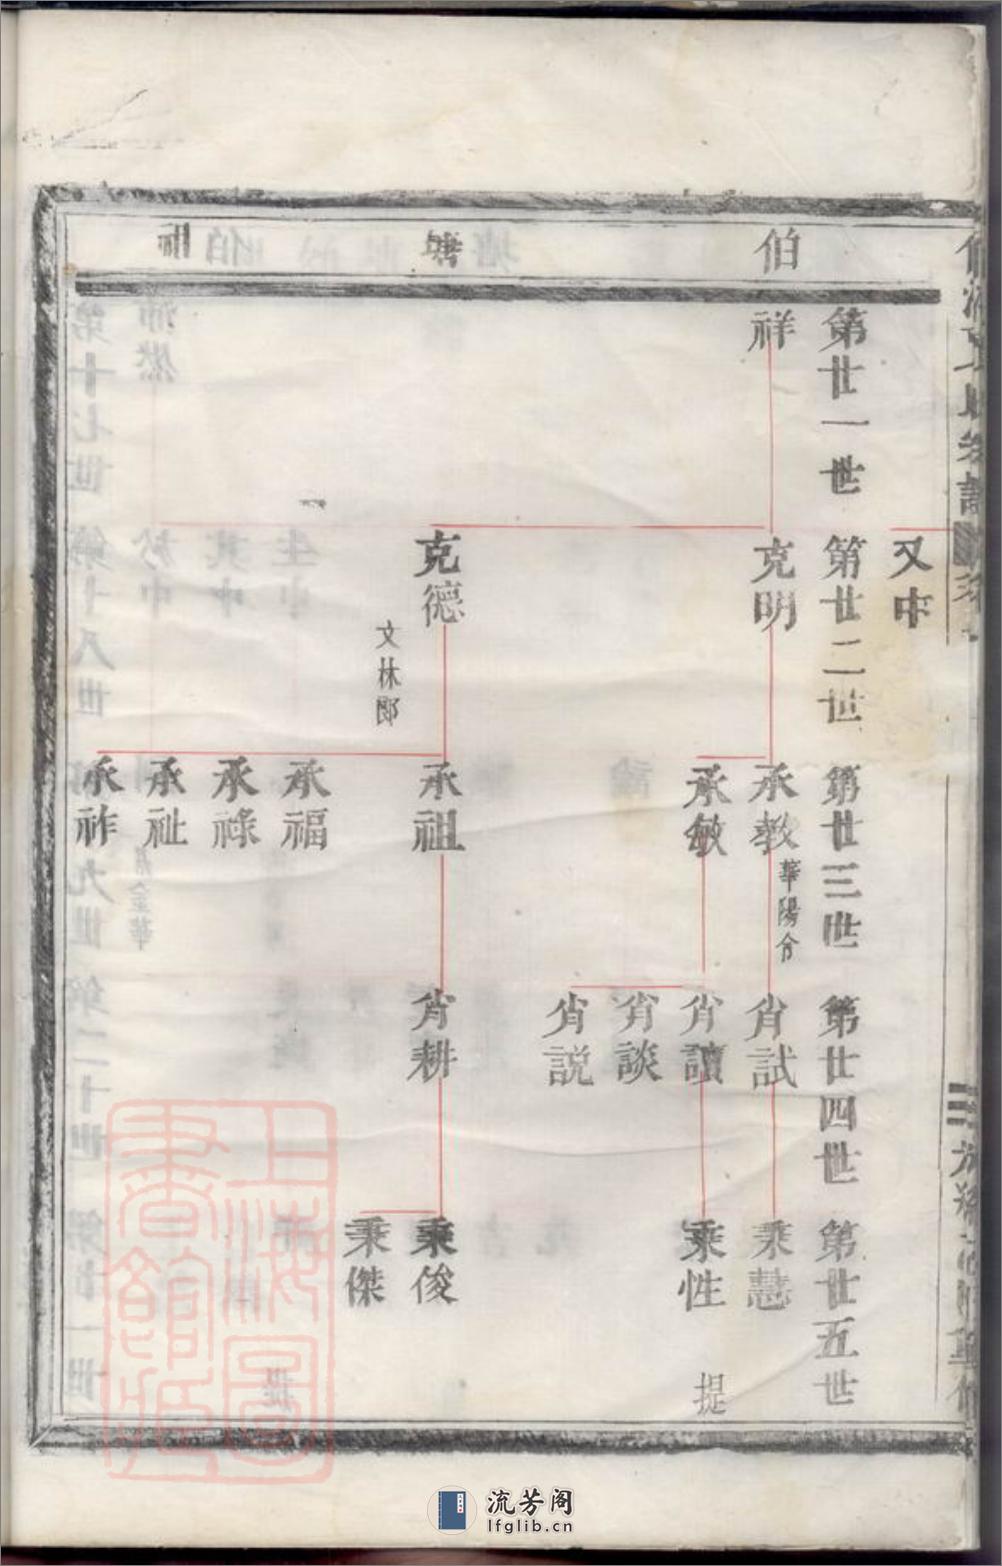 伯 塘
第廿一世
祥
又中
第廿二世
克明
克德
文林郎
第廿三世
承教
華陽令
承敏
承祖
承福
承祿
承祉
承祚
第廿四世
肖試
肖讀
肖談
肖説
肖耕
第廿五世
秉慧
秉性
提
秉俊
秉傑
上海圖書館藏
流芳阁
lfglib.cn